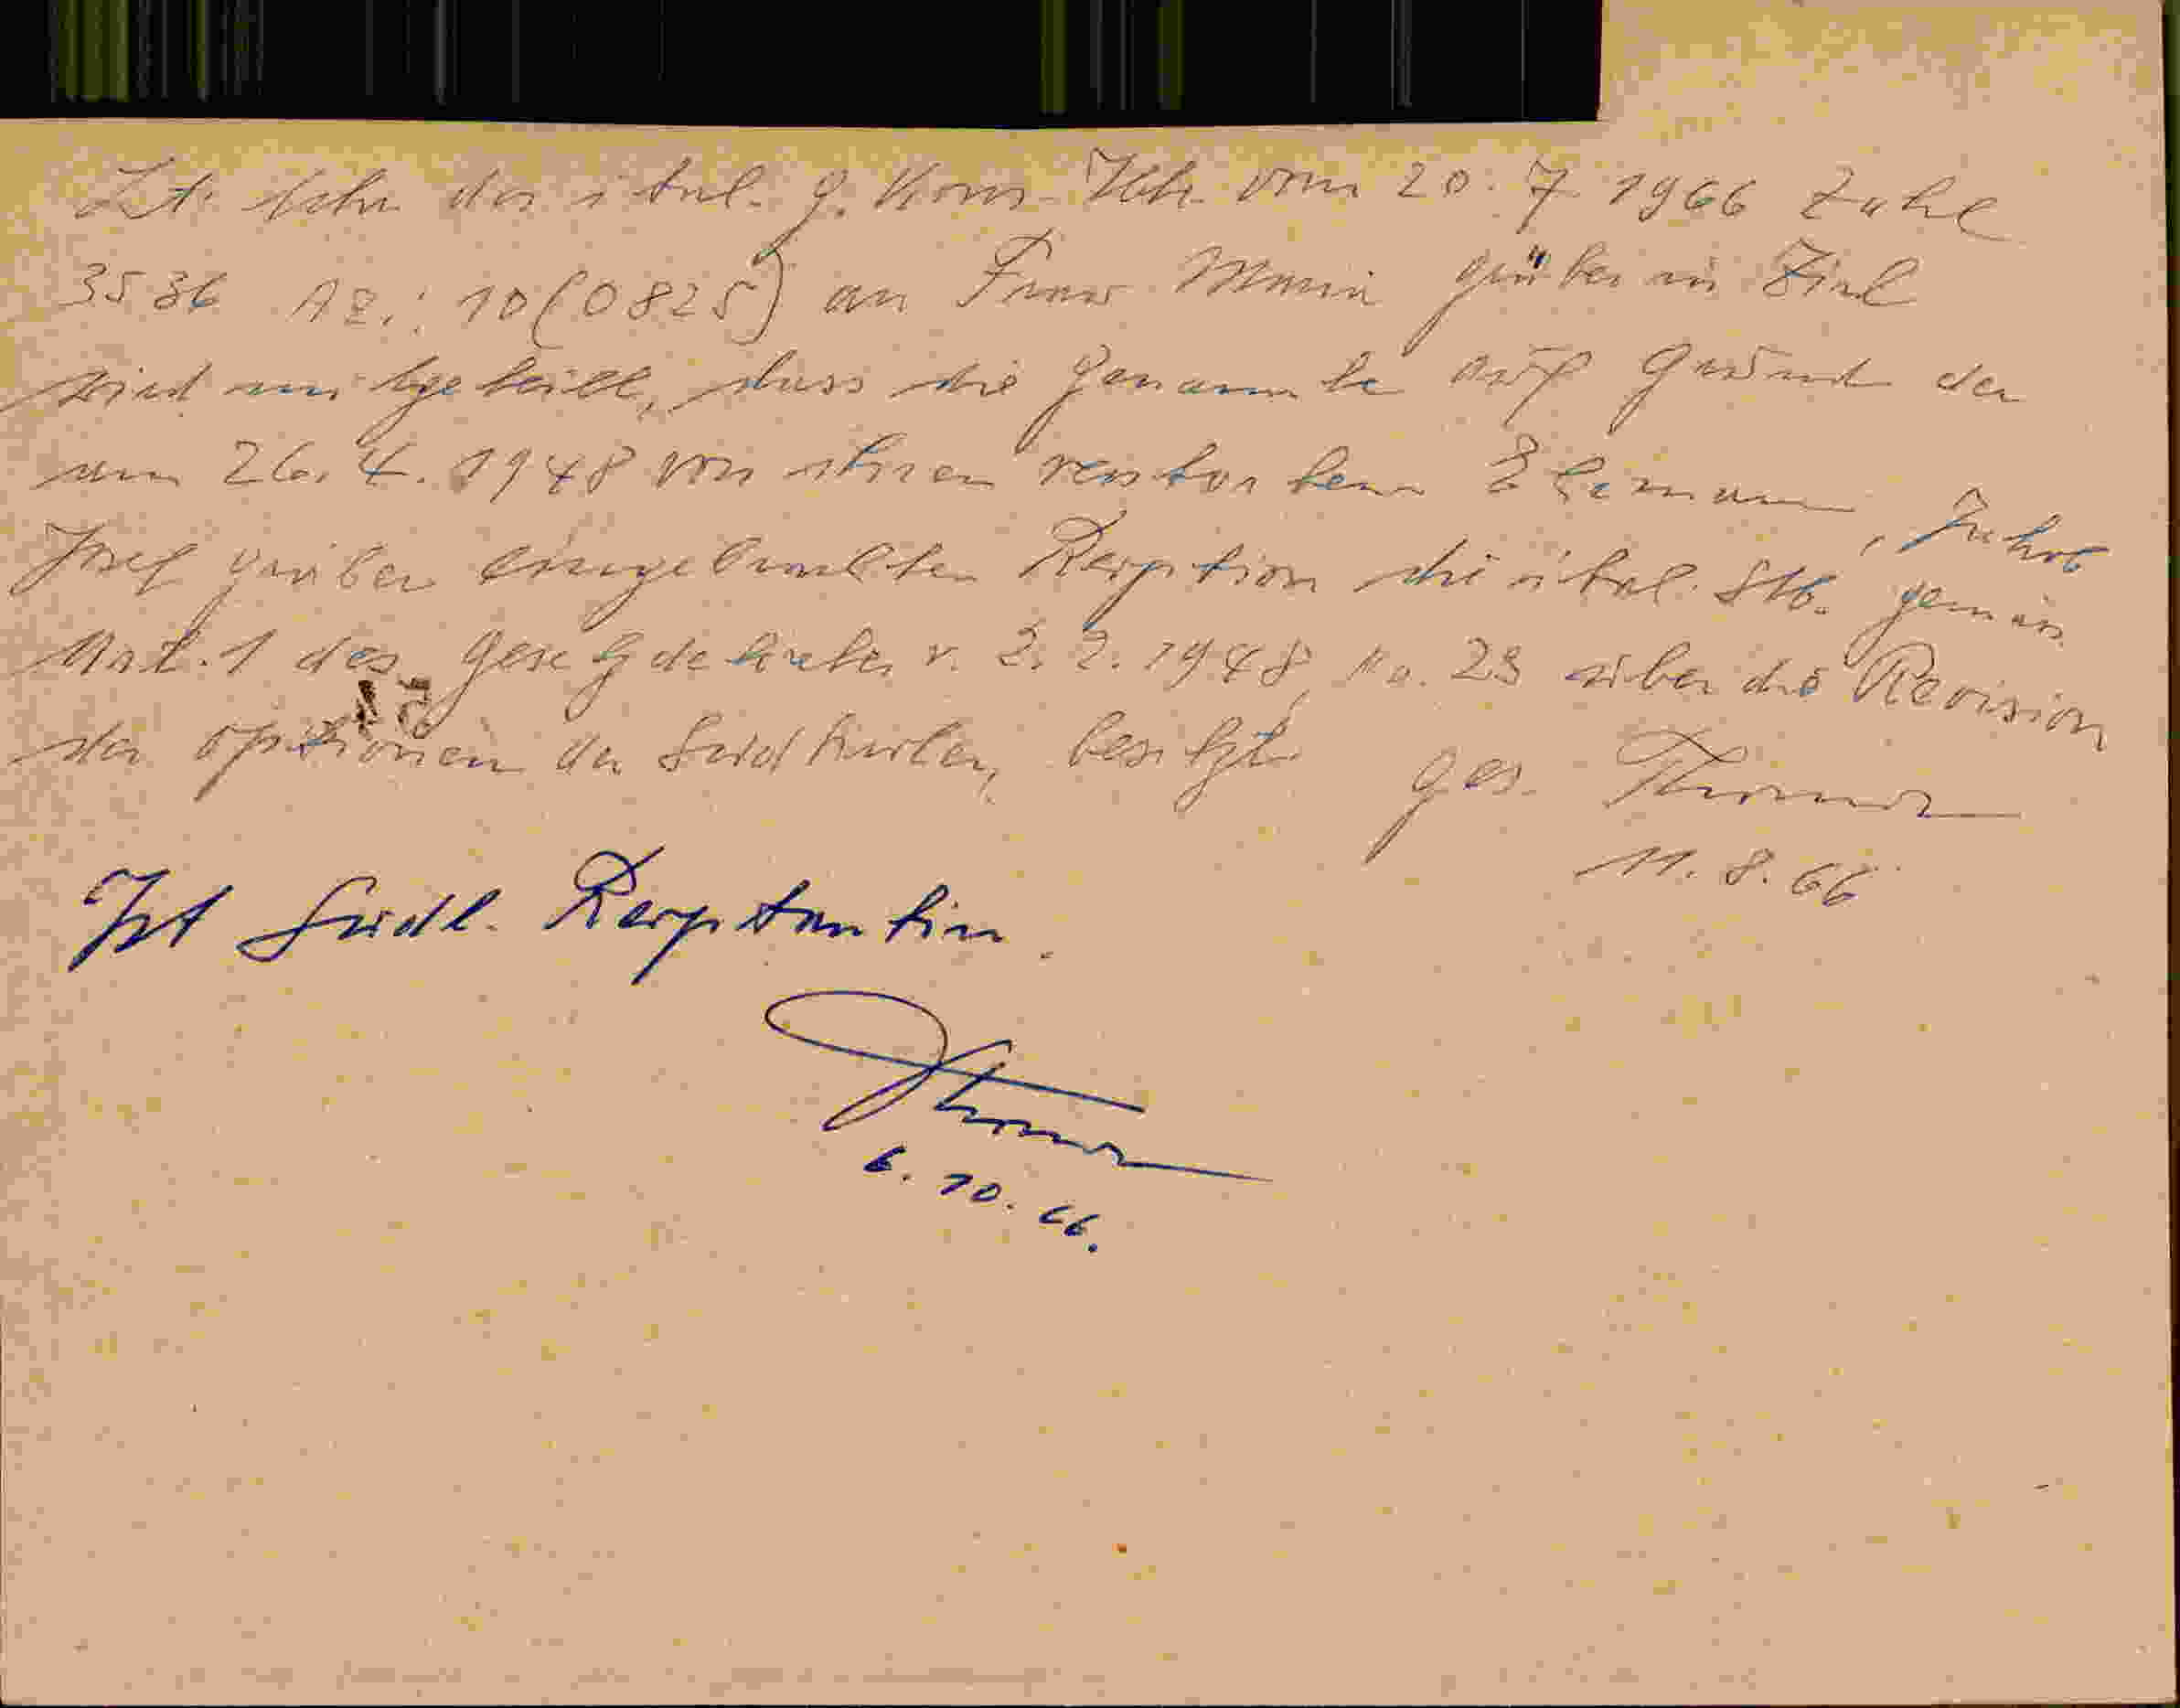 Lt. Schr. des ital. G. Kons. Ibk. vom 20. 7. 1966 Zahl
3536 Az.: 10(0825) an Frau Maria in Zirl
wird mitgeteilt, dass die Genannte auf Grund der
am 26. 4. 1948 von ihrem Ehemann, Jakob
Josef eingebrachten Reoption die ital. Stb. gemäss
Art. 1 des Gesetzdekretes v. 2. 2. 1948, No. 23 über die Revision
der Optionen der Südtiroler, besitzt. gez.
11. 8. 66
Ist Südt. Reoptantin.
6. 10. 66.